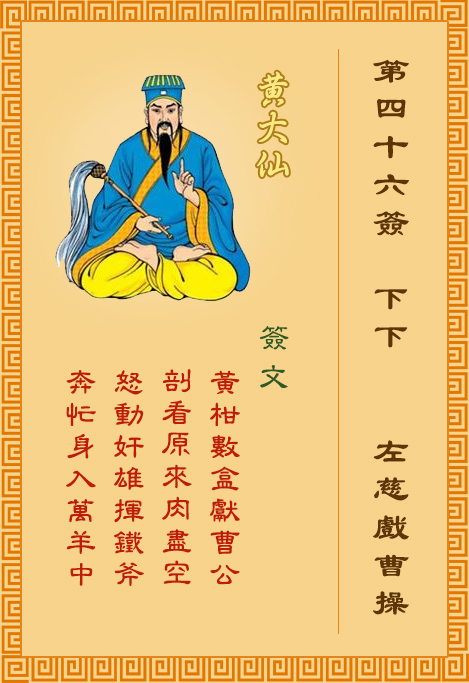 第四十六簽 下下 左慈戲曹操
黃大仙
簽文
黃柑數盒獻曹公
剖看原來肉盡空
怒動奸雄揮鐵斧
奔忙身入萬羊中